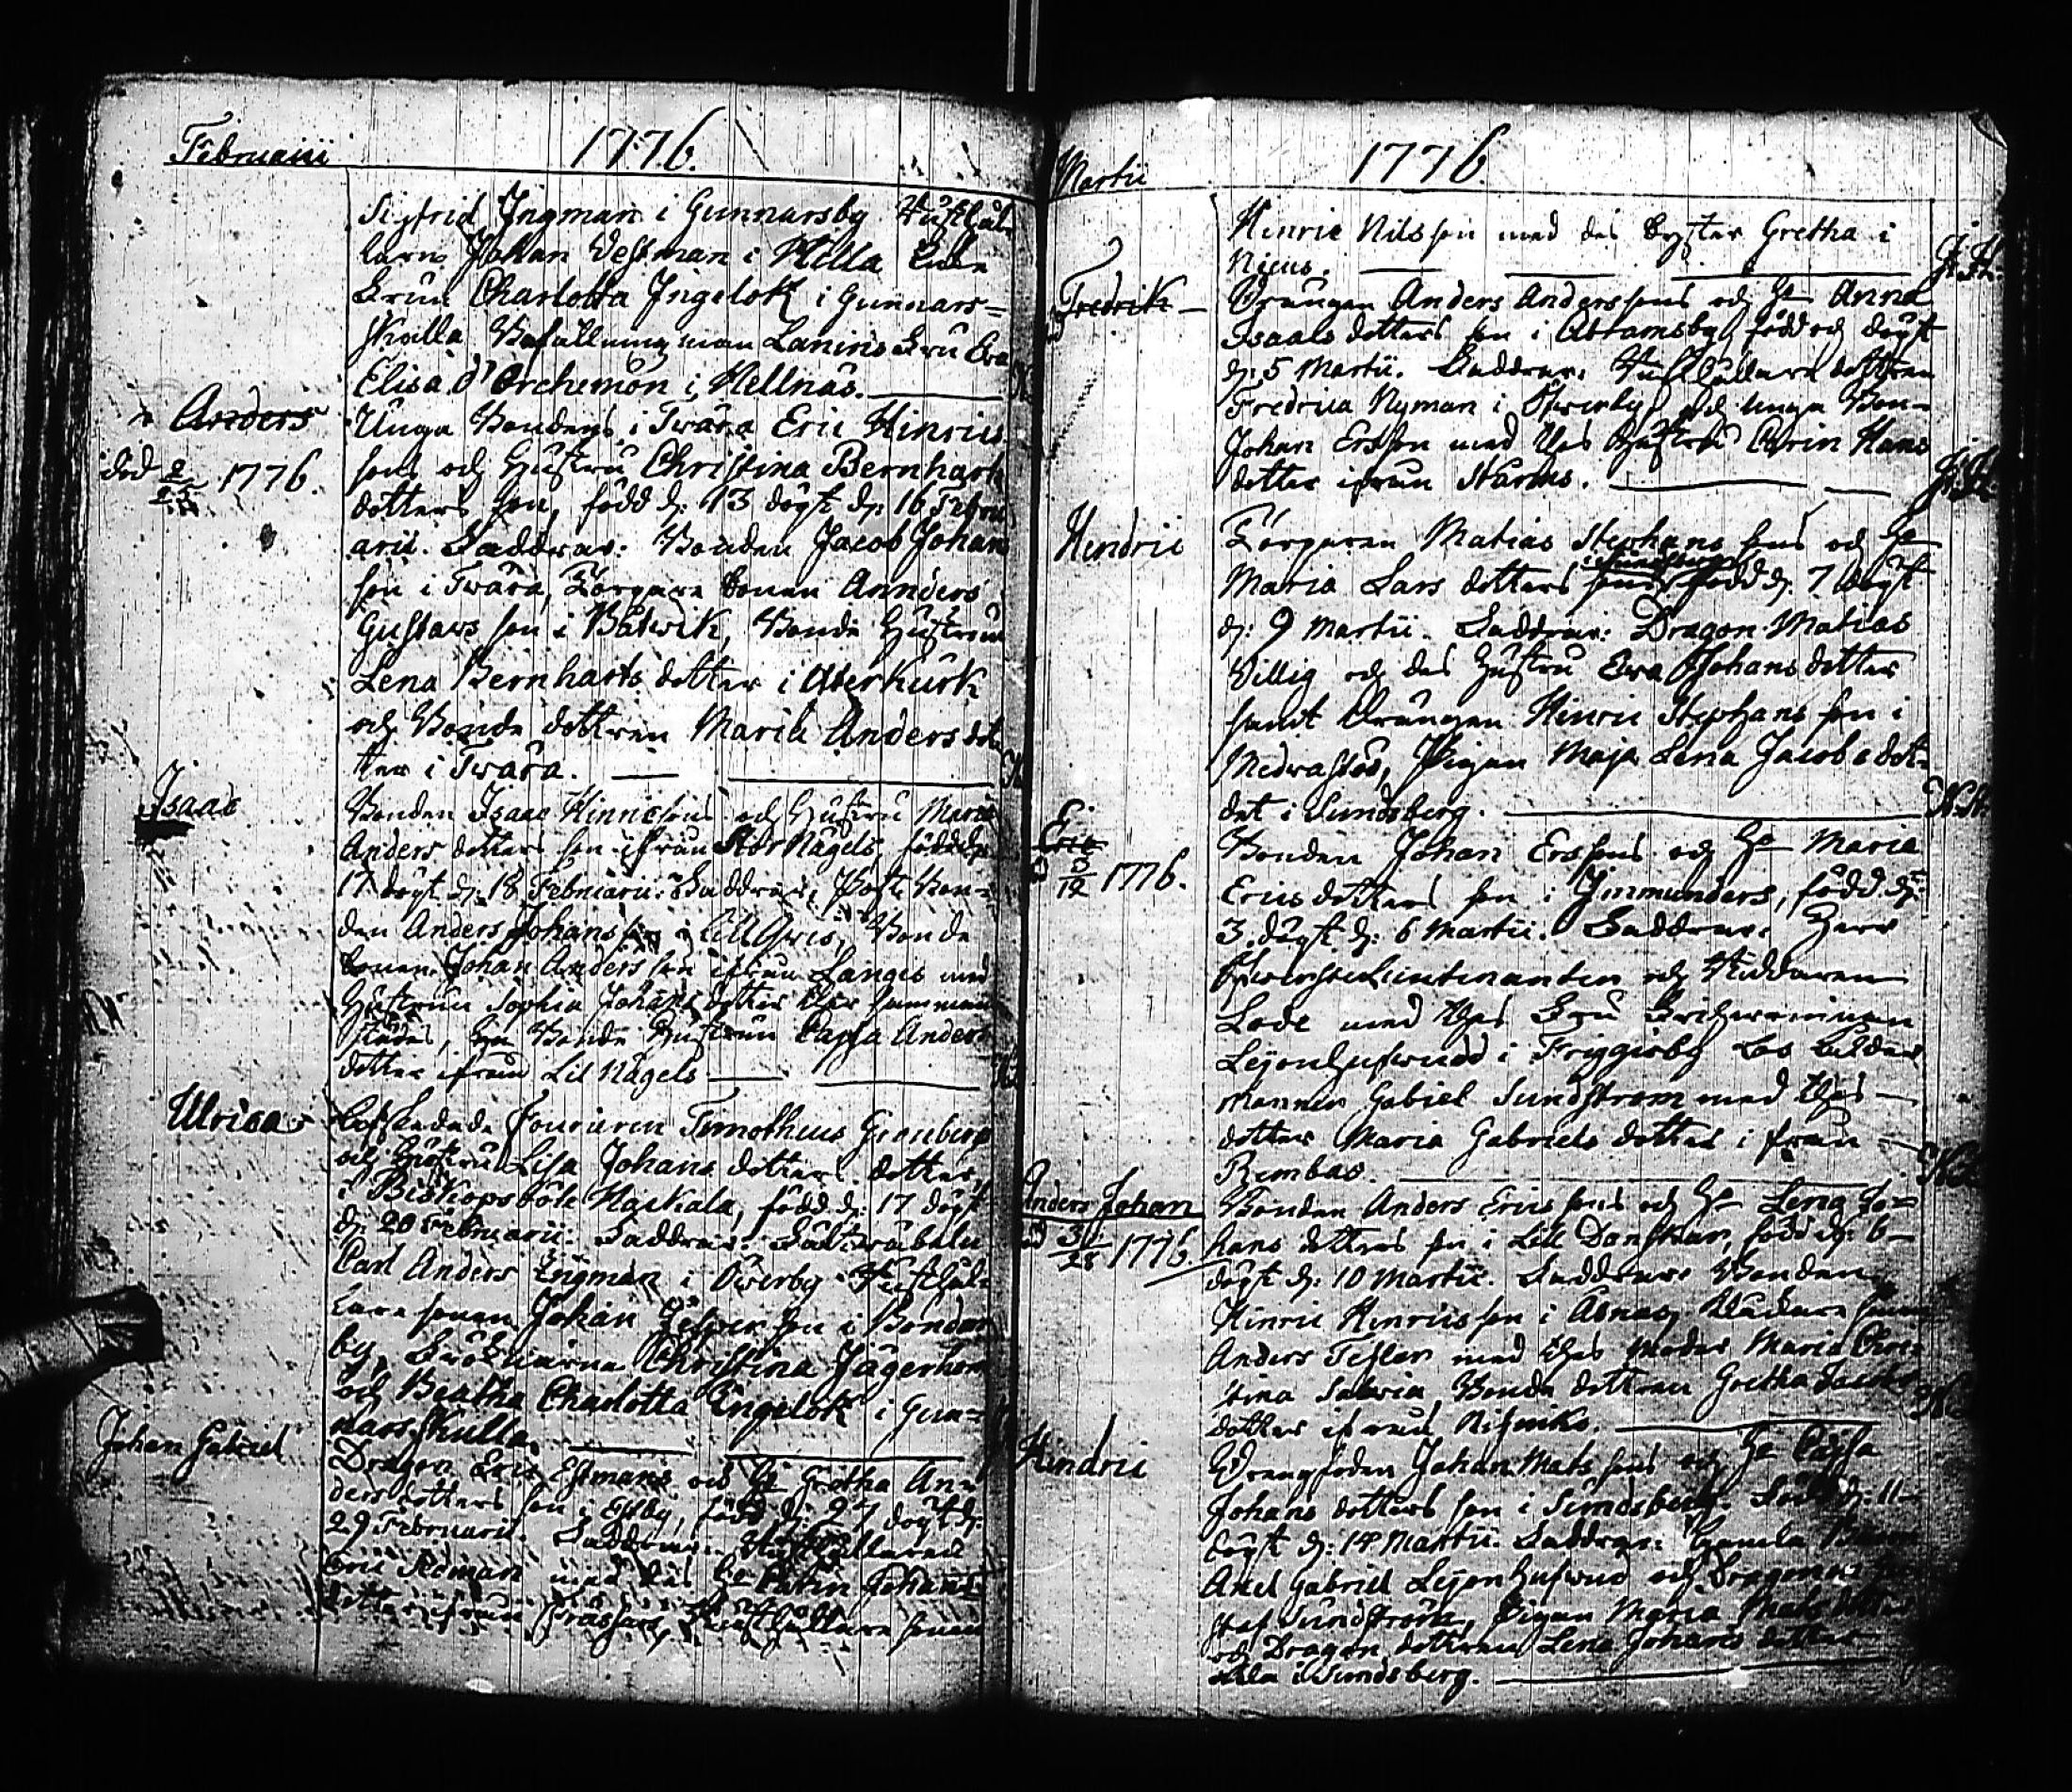 Februarii 1776.
Sigfrid Ingman i Gunnarsby Rusthål-
larn Johan Vestman i Hella
Frun Charlotta Ingelot i Gunnars=
kulla Befallningsman Lanins Fru Eva
Elisa d'Orchemon i Hellnäs.
Anders
död 2/23 1776.
Unga Bondens i Twära Eric Hinrics
sons och Hustru Christina Bernharts
dotters son, född d: 13 döpt d: 16 Febru
arii. Faddrar: Bonden Jacob Johan
son i Twära, Torpare sonen Annders
Gustavs son i Båtwik, Bonde Hustrun
Lena Bernharts dotter i Österkurk
och Bonde dottren Maria Anders dot
ter i Twära.
Isaac
Bonden Isaac Hinricsons och Hustru Maria
Anders dotters son ifrån Stor Nägels, född d:
17 döpt d: 18 Februarii. Faddrar: Bon-
den Anders Johansson i Lill Bonde
sonen Johan Anders son ifrån Långis med
Hustrun Sophia Johans dotter samman
städes, Bonde Hustrun Cajsa Anders
dotter ifrån Lil Nägels
Ulrica
Afskedade Fourieren Timotheus Gronberg
och Hustru Lisa Johans dotters dotter,
i Biskopsböle Nackala, född d: 17 döpt
d: 20 Februarii. Faddrar:
Carl Anders Engman i Öwerby Rusthål-
lare sonen Johan Jesper son i Bondar
by, Christina Jägerhorn
och Beatha Charlotta Engelot i Gun=
narskulla.
Johan Gabriel
Dragon Eric Estmans och H: Gretha An-
ders dotters son i Estby, född d: 27 döpt d:
29 Februarii. Faddrar: Rusthållaren
Eric Roman med dess H: Catrin Johans
dotter ifrån Rusthållare sonen
Martii 1776.
Hinric Nilsson med des syster Gretha i
Nicus.
Fredrik
Drängen Anders Anderssons och H: Anna
Isaacs dotters son i Abramsby född och döpt
d: 5 Martii. Faddrar: Rusthållare dottren
Fredrica Nyman i Öfwerby, och unga Bon-
Johan Ersson med des Hustru Carin Hans
dotter ifrån Starkus.
Hendric
Torparen Matias Stephans sons och H:
Maria Lars dotters son i Sundsberg född d: 7 döpt
d: 9 Martii. Faddrar: Dragon Matias
Villig och des Hustru Ewa Johans dotter
samt Drängen Hinric Stephans son i
Medvastö, Pigan Maja Lena Jacobs dot-
dot i Sundsberg.
Eric
D 3/12 1776.
Bonden Johan Erssons och H: Maria
Erics dotters son i Ingmunders, född d:
3. döpt d: 6 Martii. Faddrar: Herr
Öfwerste Lieutenanten och Riddaren
Lode med des Fru Friherrinnan
Lejonhufwud i Friggisby
mannen Gabriel Sundstrom med des
dotter Maria Gabriels dotter ifrån
Rembas.
Anders Johan
D 3/28 1776.
Bonden Anders Erics sons och H: Lena Jo=
hans dotters son i Lill Donskar, född d: 6
döpt d: 10 Martii. Faddrar: Bonden
Hinric Hinricsson i Abnas, son
Anders Tesler med des moder Maria Chri-
stina Bonde dottren Gretha Jacobs
dotter ifrån Nisniks.
Hindric
Drengfoden Johan Mats sons och H: Cajsa
Johans dotters son i Sundsberg. Född d: 11
döpt d: 14 Martii. Faddrar: Gamla Baron
Axel Gabriel Lejonhufwud och Dragonen
staf Sundström, Pigan Maria Mats dotter
och Dragon dottren Lena Johans dotter
alla i Sundsberg.